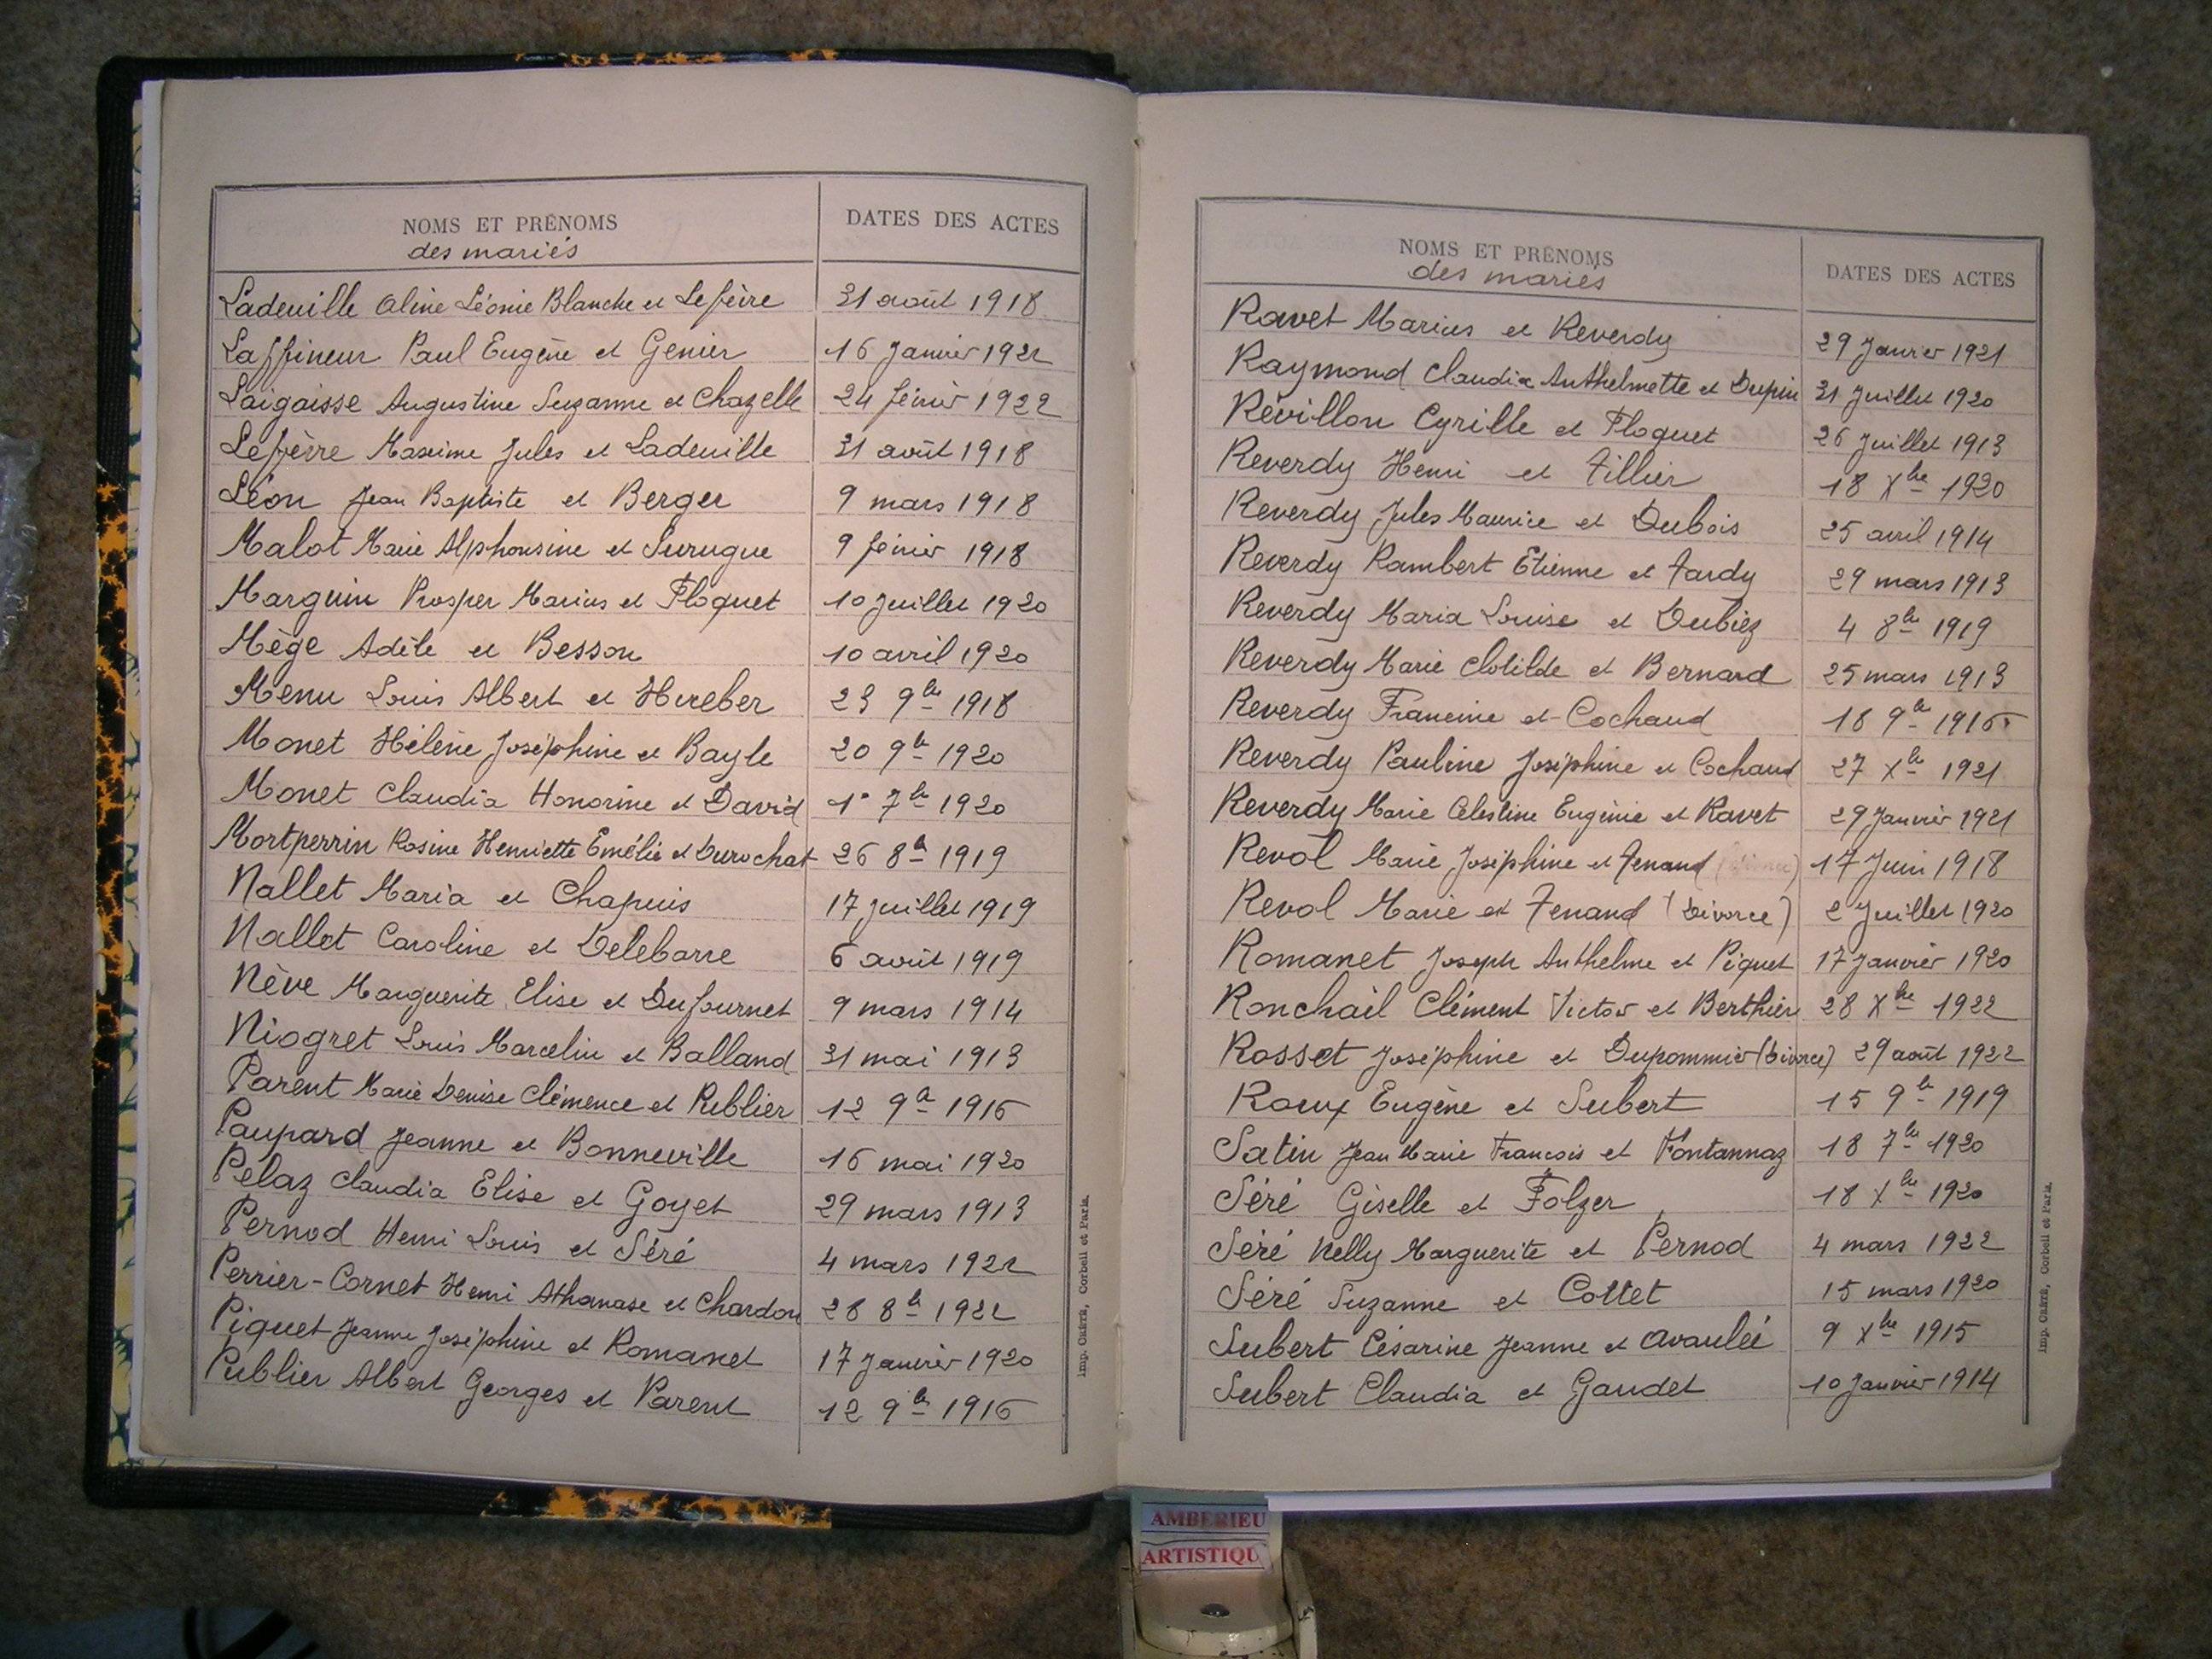 NOMS ET PRÉNOMS
des mariés
DATES DES ACTES
Ladeuille Aline Léonie Blanche et Lefèvre 31 août 1918
Laffineur Paul Eugène et Genier 16 Janvier 1922
Laigaisse Augustine Suzanne et Chazelle 24 février 1922
Lefèvre Maxime Jules et Ladeuille 31 août 1918
Léon Jean Baptiste et Berger 9 mars 1918
Malot Marie Alphonsine et Surugue 9 février 1918
Marguin Prosper Marius et Floquet 10 Juillet 1920
Mège Adèle et Besson 10 avril 1920
Menu Louis Albert et Hureber 23 9bre 1918
Monet Hélène Joséphine et Bayle 20 9bre 1920
Monet Claudia Honorine et David 1° 7bre 1920
Mortperrin Rosine Henriette Emélie et Durochat 26 8bre 1919
Nallet Maria et Chapuis 17 Juillet 1919
Nallet Caroline et Delebarre 6 août 1919
Nève Marguerite Elise et Dufournet 9 mars 1914
Niogret Louis Marcelin et Balland 31 mai 1913
Parent Marie Denise Clémence et Publier 12 9bre 1916
Paupard Jeanne et Bonneville 16 mai 1920
Pelaz Claudia Elise et Goyet 29 mars 1913
Pernod Henri Louis et Séré 4 mars 1922
Perrier-Cornet Henri Athanase et Chardon 28 8bre 1922
Piquet Jeanne Joséphine et Romanet 17 Janvier 1920
Publier Albert Georges et Parent 12 9bre 1916
Imp. CRÉTÉ, Corbeil et Paris.
NOMS ET PRÉNOMS
des mariés
DATES DES ACTES
Ravet Marius et Reverdy 29 Janvier 1921
Raymond Claudia Anthelmette et Dupin 31 Juillet 1920
Révillon Cyrille et Floquet 26 Juillet 1913
Reverdy Henri et Tillier 18 Xbre 1920
Reverdy Jules Maurice et Dubois 25 avril 1914
Reverdy Rambert Etienne et Tardy 29 mars 1913
Reverdy Maria Louise et Dubiez 4 8bre 1919
Reverdy Marie Clotilde et Bernard 25 mars 1913
Reverdy Francine et Cochaud 18 9bre 1916
Reverdy Pauline Joséphine et Cochaud 27 Xbre 1921
Reverdy Marie Célestine Eugénie et Ravet 29 Janvier 1921
Revol Marie Joséphine et Fenand 17 Juin 1918
Revol Marie et Fenand (Divorce) 2 Juillet 1920
Romanet Joseph Anthelme et Piquet 17 Janvier 1920
Ronchail Clément Victor et Berthier 28 Xbre 1922
Rosset Joséphine et Dupommier (Divorce) 29 août 1922
Roux Eugène et Subert 15 9bre 1919
Satin Jean Marie François et Fontannaz 18 7bre 1920
Séré Giselle et Folzer 18 Xbre 1920
Séré Nelly Marguerite et Pernod 4 mars 1922
Séré Suzanne et Cottet 15 mars 1920
Subert Césarine Jeanne et Avaulée 9 Xbre 1915
Subert Claudia et Gaudet 10 Janvier 1914
Imp. CRÉTÉ, Corbeil et Paris.
AMBERIEU
ARTISTIQU